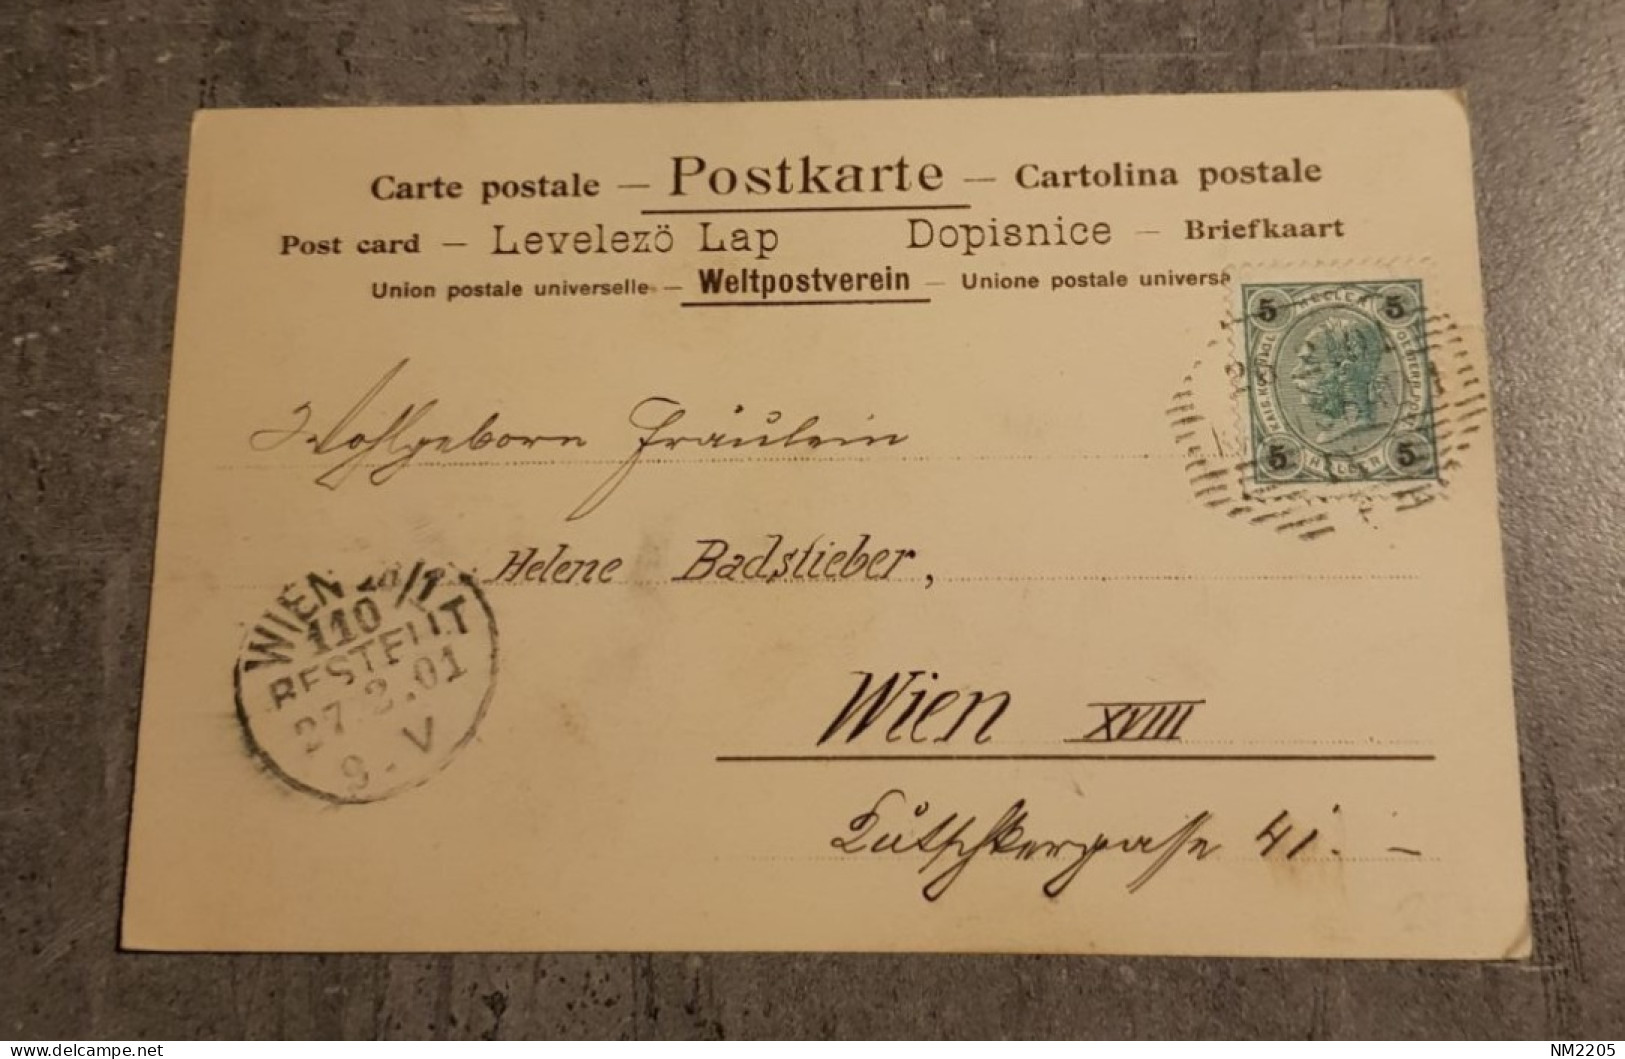 Carte postale — Postkarte — Cartolina postale
Post card — Levelezö Lap Dopisnice — Briefkaart
Union postale universelle — Weltpostverein — Unione postale universa
5 HELLER 5
KAIS. KÖNIGL. OESTERR. POST
5 HELLER 5
Wohlgeborn Fräulein
Helene Badstieber,
WIEN
110
BESTELLT
27.2.01
9-V
Wien XVIII
41. —
delcampe.net
NM2205